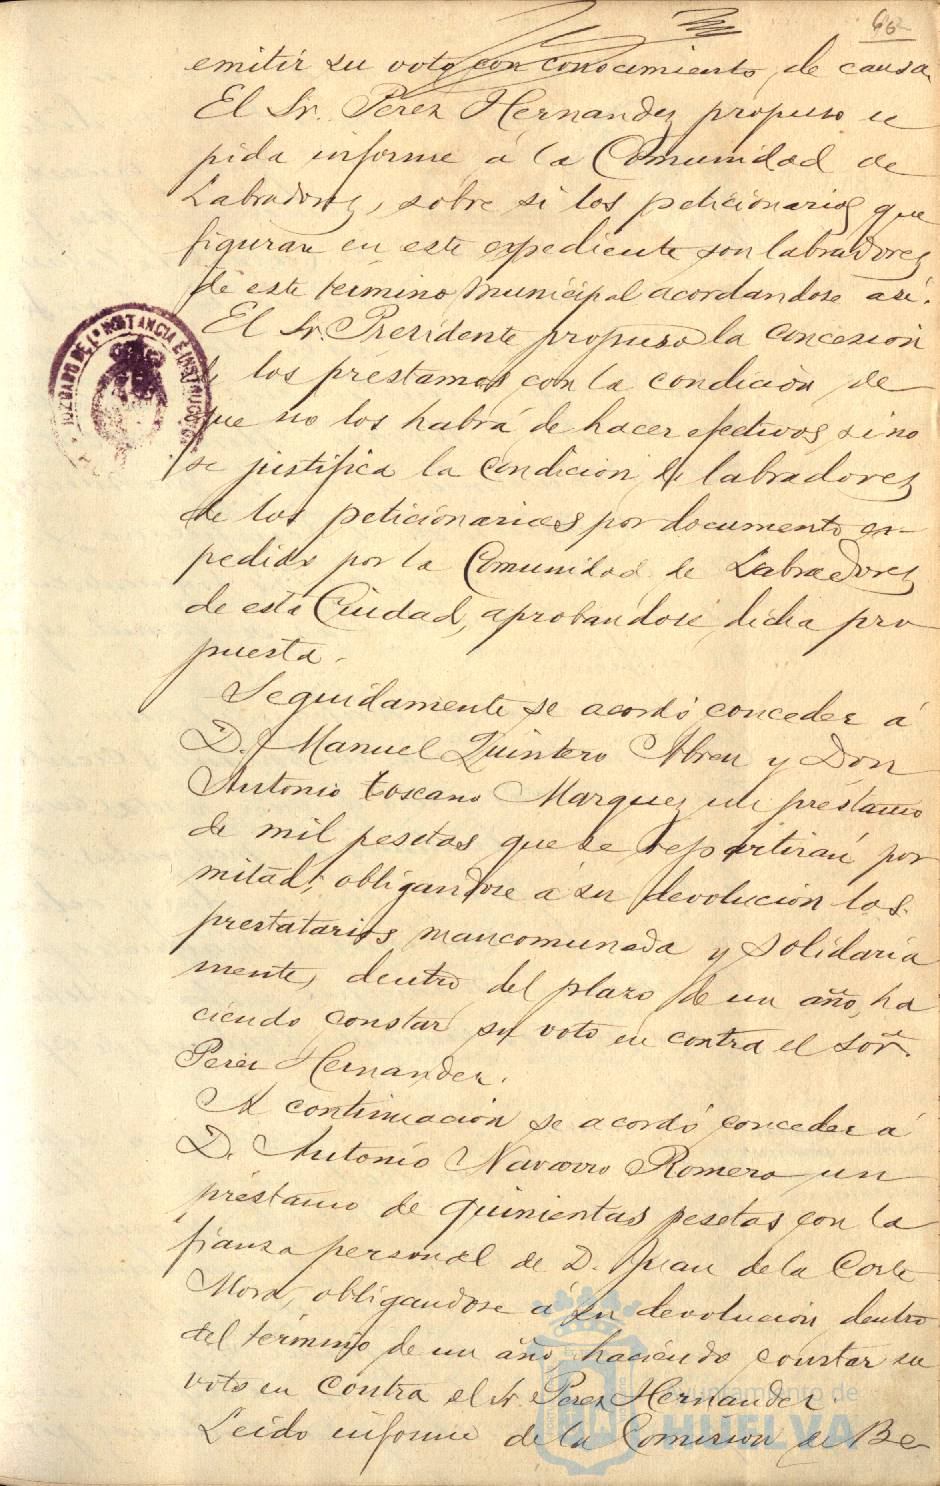 66
emitir su voto con conocimiento de causa.
El Sr. Perez Hernandez propuso se
pida informe á la Comunidad de
Labradores, sobre si los peticionarios que
figuran en este expediente son labradores
de este término municipal acordandose así.
El Sr. Presidente propuso la concesión
de los préstamos con la condición de
que no los habrá de hacer efectivos si no
se justifica la condición de labradores
de los peticionarios por documento ex-
pedido por la Comunidad de Labradores
de esta Ciudad, aprobandose dicha pro
puesta.
Seguidamente se acordó conceder á
D. Manuel Quintero Abreu y Don
Antonio Toscano Marquez un préstamo
de mil pesetas que se repartirán por
mitad, obligandose á su devolución los
prestatarios mancomunada y solidaria
mente, dentro del plazo de un año, ha
ciendo constar su voto en contra el Soñr.
Perez Hernandez.
A continuación se acordó conceder á
D. Antonio Navarro Romero un
préstamo de quinientas pesetas con la
fianza personal de D. Juan de la Corte
Mora, obligandose á su devolución dentro
del término de un año haciendo constar su
voto en contra el Sr. Perez Hernandez.
Leido informe de la Comision de Be-
JUZGADO DE 1ª INSTANCIA É INSTRUCCION
Ayuntamiento de
HUELVA